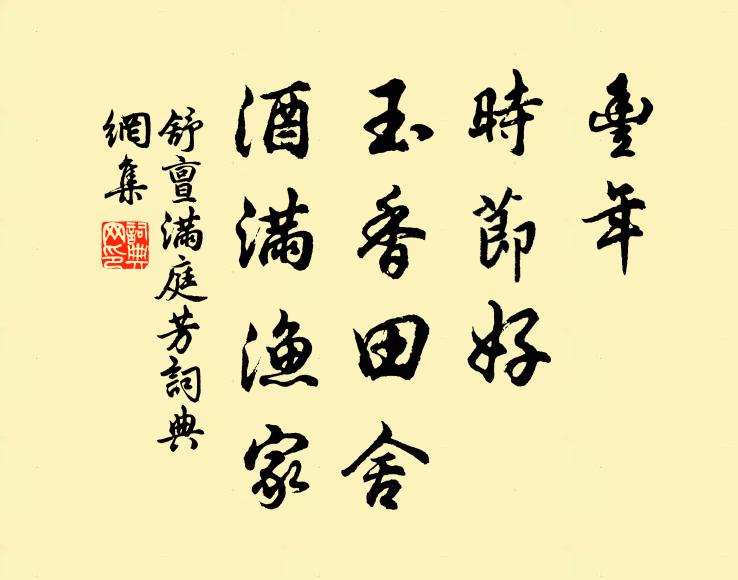 豐年
時節好
玉香田舍
酒滿漁家
舒亶滿庭芳詞典
網集
詞典网印